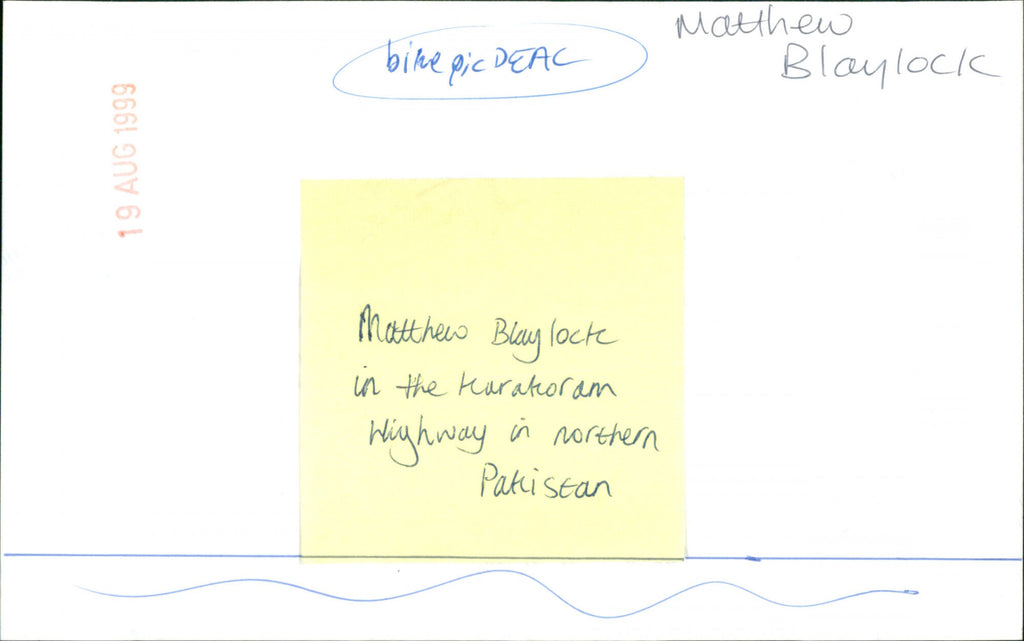 bike pic DEAC
Matthew
Blaylock
19 AUG 1999
Matthew Blaylock
in the Karakoram
Highway in northern
Pakistan